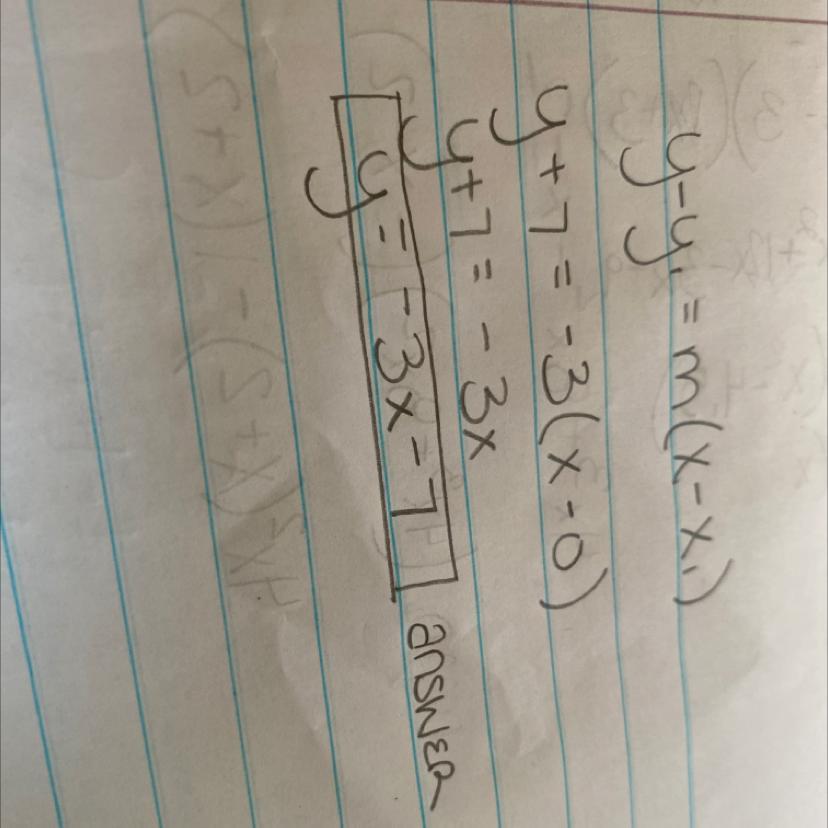 y-y₁ = m(x-x₁)
y+7 = -3(x-0)
y+7 = -3x
y = -3x-7 answer